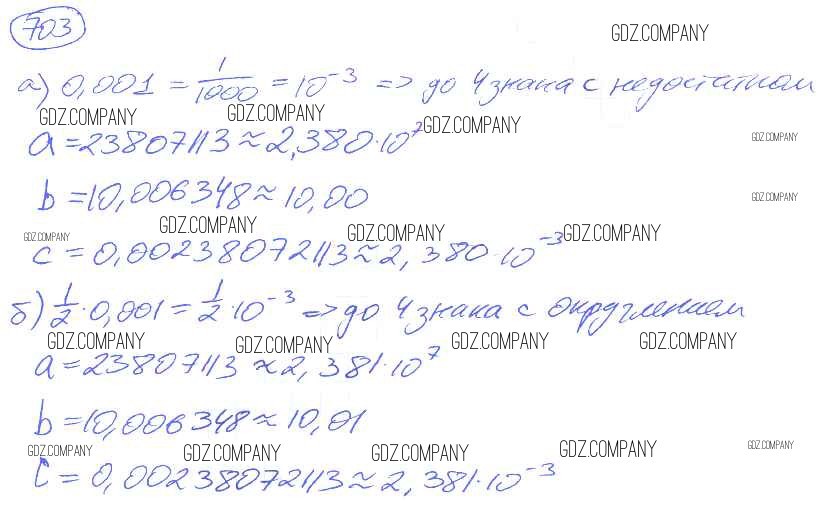 703 GDZ.COMPANY
а) 0,001 = 1/1000 = 10⁻³ => до 4 знака с недостатком
GDZ.COMPANY GDZ.COMPANY GDZ.COMPANY GDZ.COMPANY
a = 23807113 ≈ 2,380·10⁷
b = 10,006348 ≈ 10,00 GDZ.COMPANY
GDZ.COMPANY GDZ.COMPANY GDZ.COMPANY GDZ.COMPANY
c = 0,00238072113 ≈ 2,380·10⁻³
б) 1/2·0,001 = 1/2·10⁻³ => до 4 знака с округлением
GDZ.COMPANY GDZ.COMPANY GDZ.COMPANY GDZ.COMPANY
a = 23807113 ≈ 2,381·10⁷
b = 10,006348 ≈ 10,01
GDZ.COMPANY GDZ.COMPANY GDZ.COMPANY GDZ.COMPANY GDZ.COMPANY
C = 0,00238072113 ≈ 2,381·10⁻³